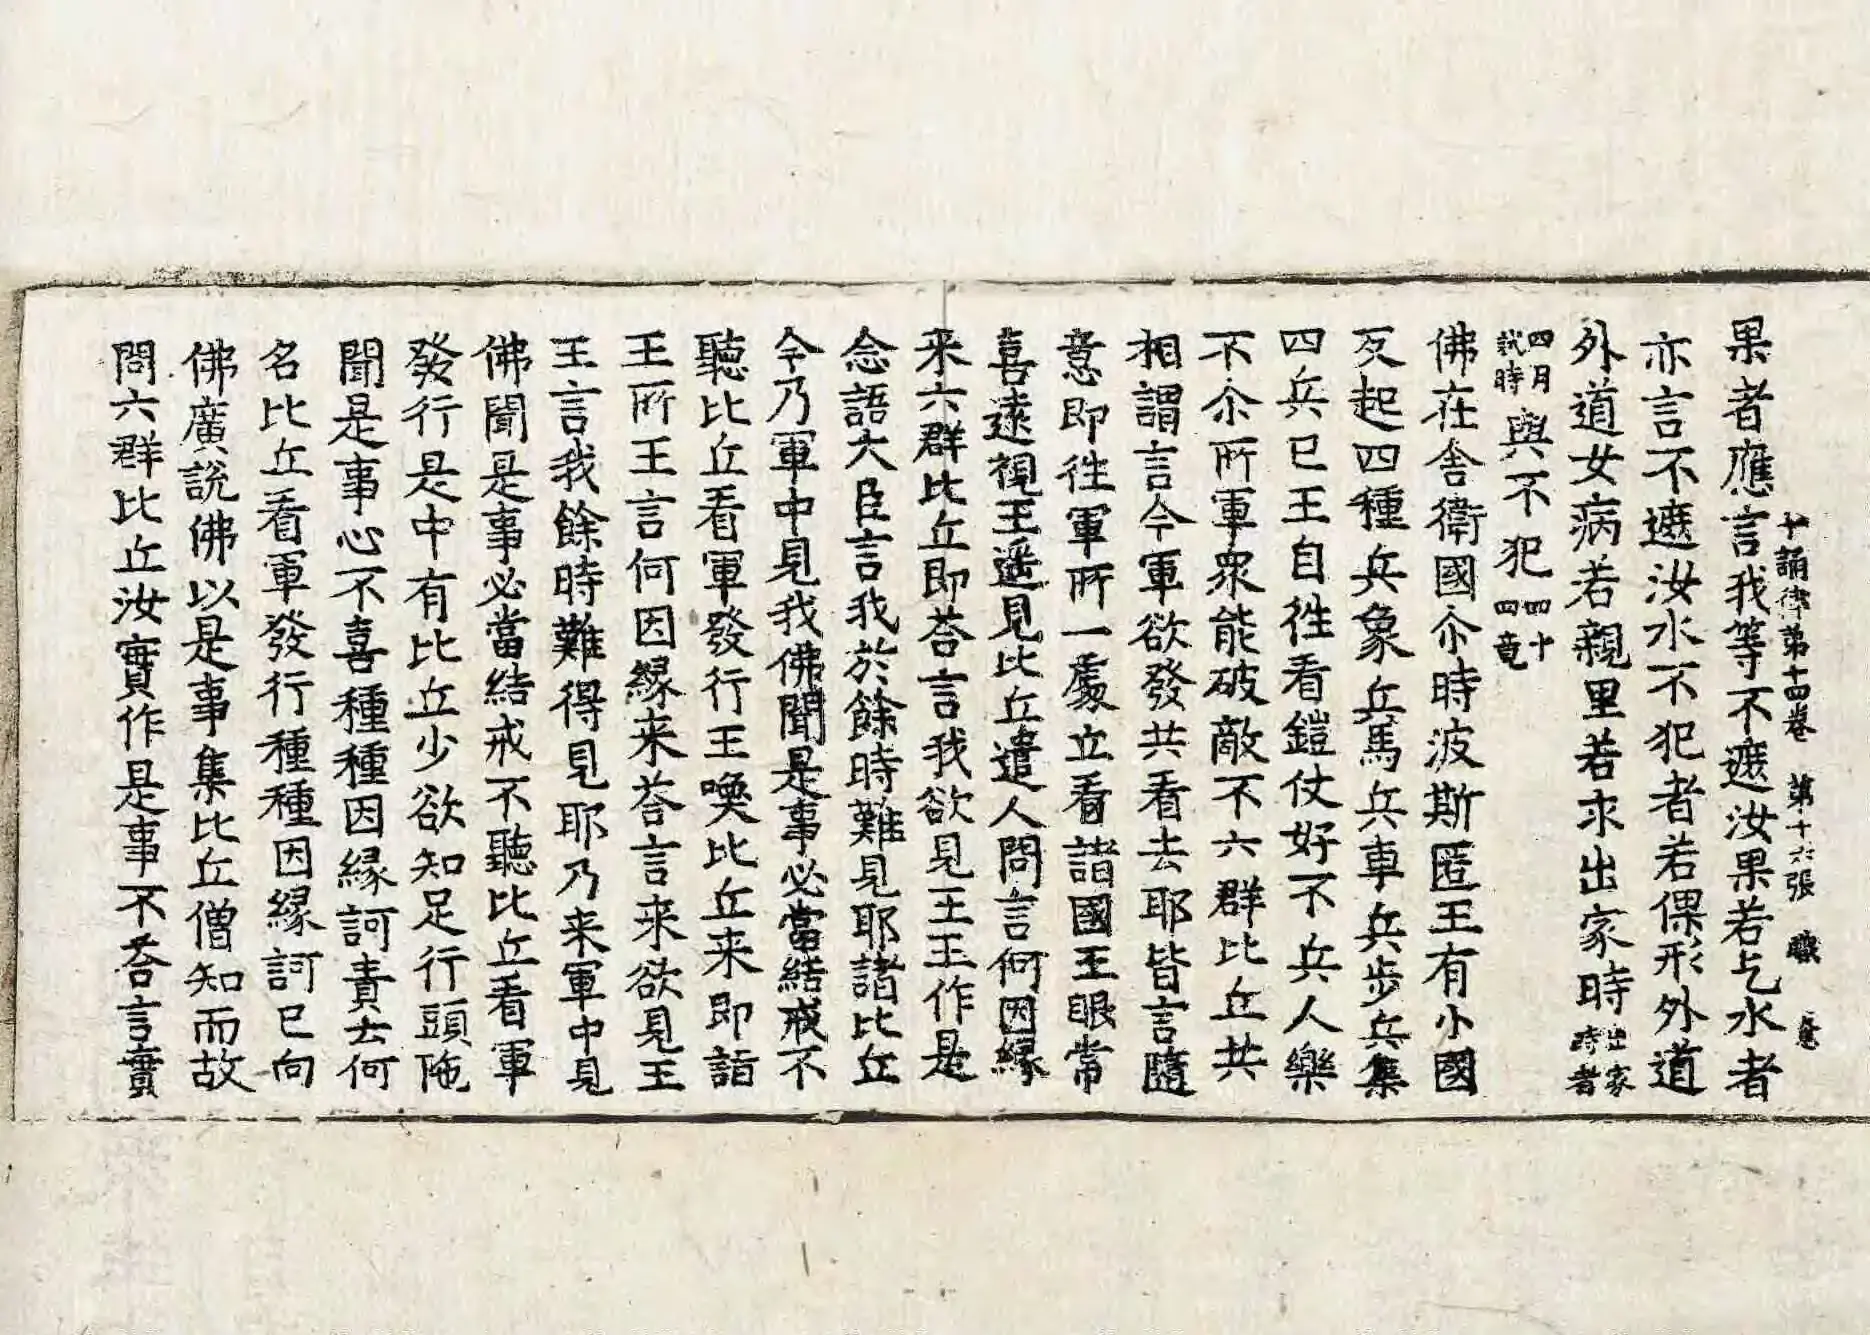 十誦律第十四卷 第十六張 職
果者應言我等不遮汝果若乞水者
亦言不遮汝水不犯者若倮形外道
外道女病若親里若求出家時出家時者
四月試時與不犯四十四竟
佛在舍衛國尒時波斯匿王有小國
反起四種兵象兵馬兵車兵步兵集
四兵已王自往看鎧仗好不兵人樂
不尒所軍眾能破敵不六群比丘共
相謂言今軍欲發共看去耶皆言隨
意即往軍所一處立看諸國王眼常
喜遠視王遥見比丘遣人問言何因緣
来六群比丘即荅言我欲見王王作是
念語大臣言我於餘時難見耶諸比丘
今乃軍中見我佛聞是事必當結戒不
聽比丘看軍發行王喚比丘来即詣
王所王言何因緣来荅言来欲見王
王言我餘時難得見耶乃来軍中見
佛聞是事必當結戒不聽比丘看軍
發行是中有比丘少欲知足行頭陁
聞是事心不喜種種因緣訶責去何
名比丘看軍發行種種因緣訶已向
佛廣說佛以是事集比丘僧知而故
問六群比丘汝實作是事不荅言實